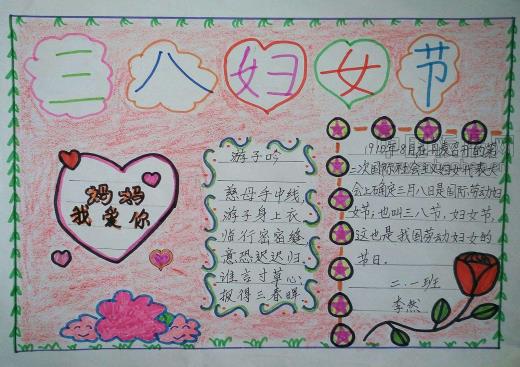 三八妇女节
妈妈
我爱你
游子吟
慈母手中线,
游子身上衣
临行密密缝
意恐迟迟归
谁言寸草心
报得三春晖
1910年8月在丹麦召开的第
二次国际社会主义妇女代表大
会上确定三月八日是国际劳动妇
女节,也叫三八节,妇女节,
这也是我国劳动妇女的
节日。
二.一班
李然